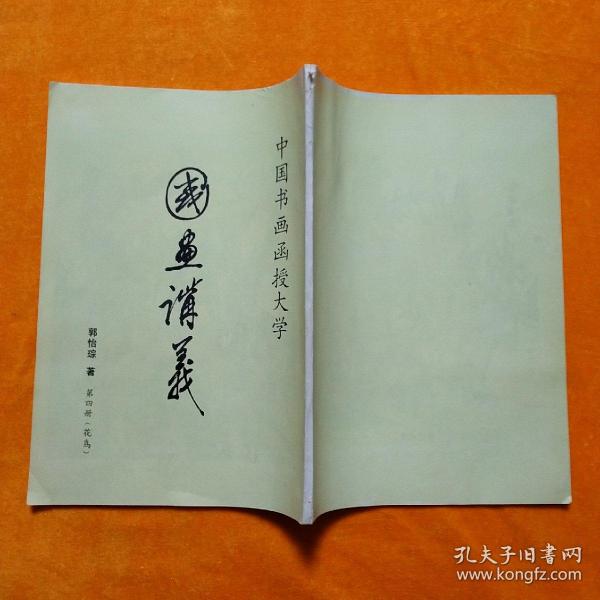 中国书画函授大学
國畫講義
郭怡琮 著
第四册(花鸟)
孔夫子旧书网
www.kongfz.com